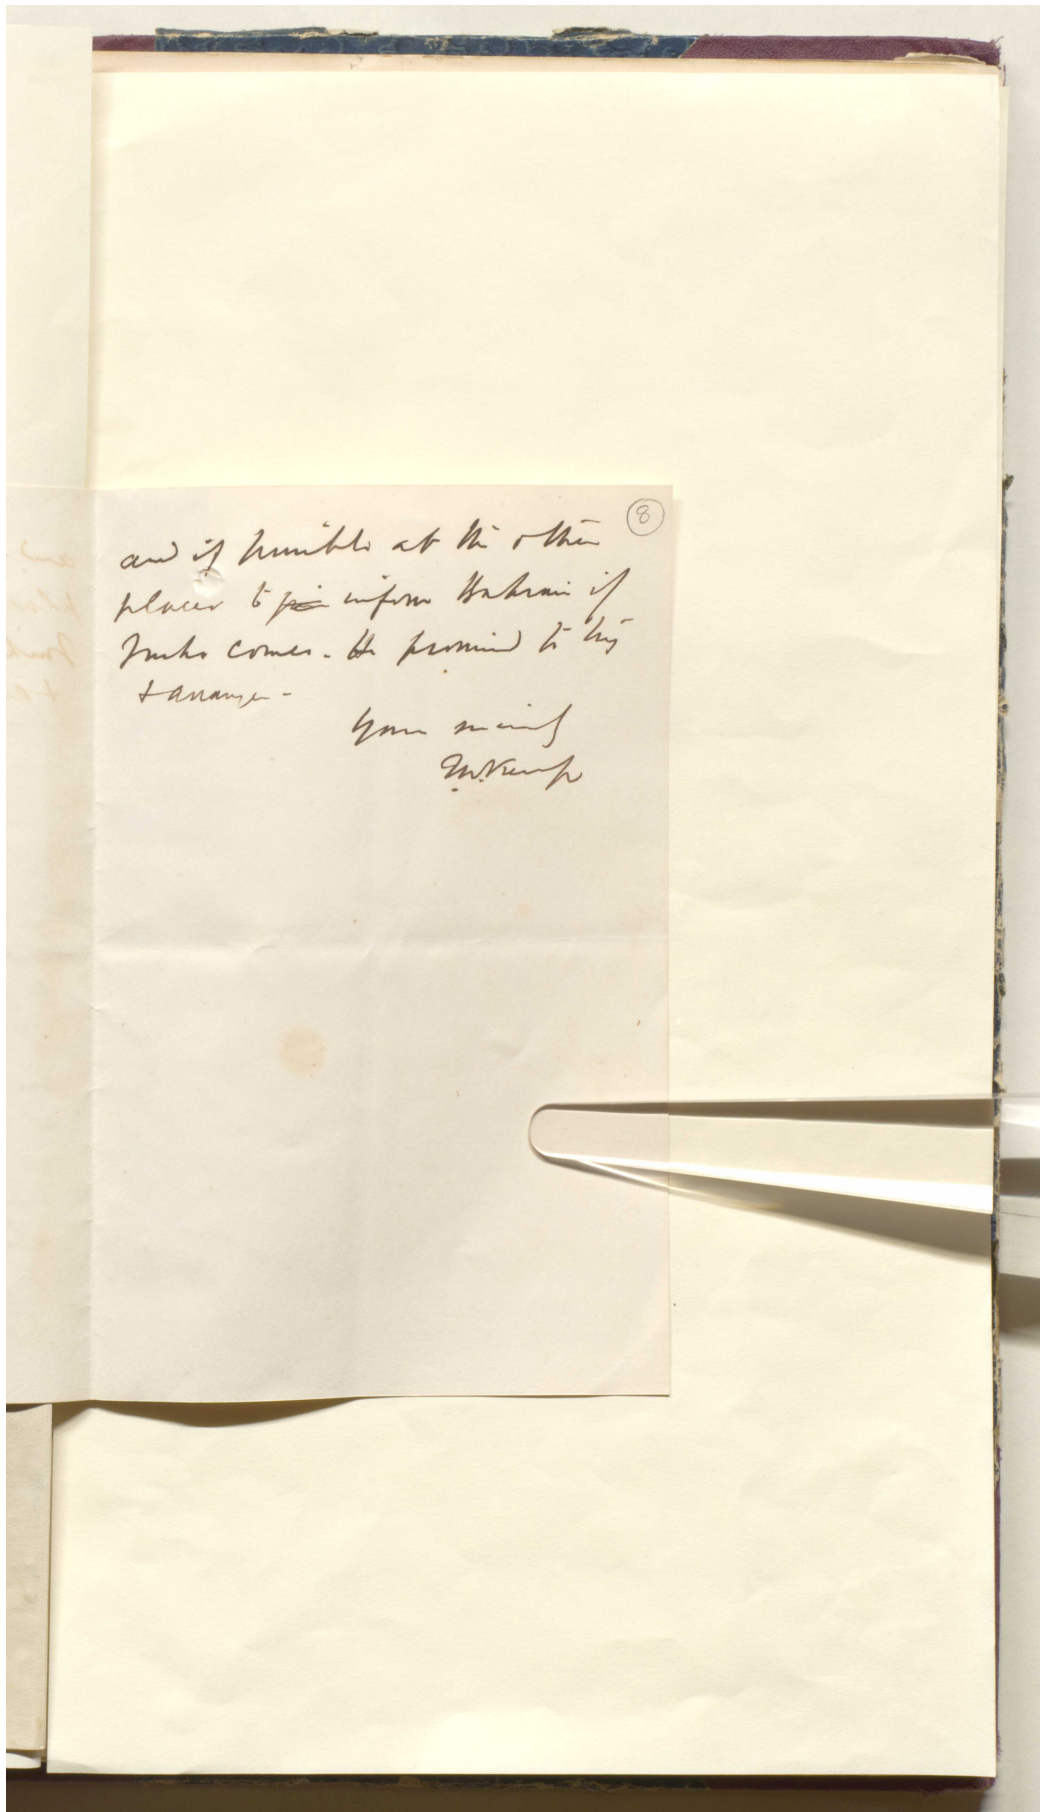 8
and if possible at the other
places to inform Bahrain if
Turks comes. He promised to try
& arrange -
Yours sincerely